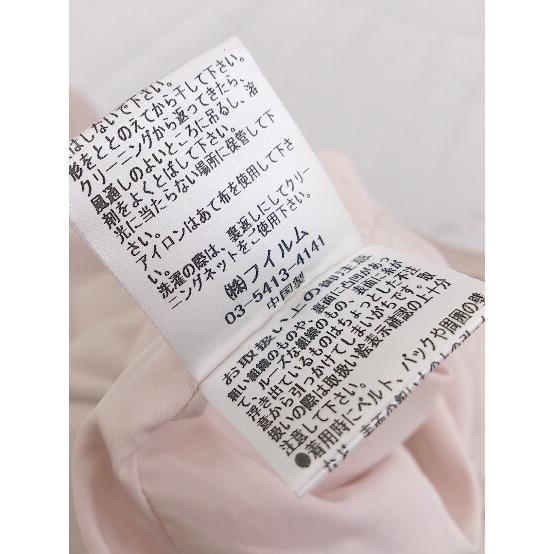 はしないで下さい。
形をととのえてから干して下さい。
クリーニングから返ってきたら、
風通しのよいところに吊るし、溶
剤をよくとばして下さい。
光に当たらない場所に保管して下
さい。
アイロンはあて布を使用して下さ
い。
洗濯の際は、裏返しにしてクリー
ニングネットをご使用下さい。
㈱フィルム
03-5413-4141
中国製
お取扱い上の御注意
粗い組織のものや、裏面に凸凹があっ
て、ルーズな組織のもの、表面に糸が
浮き出ているものはちょっとした不注
意から引っかけてしまいがちです。取
扱いの際は取扱い絵表示確認の上十分
注意して下さい。
●着用時にベルト、バックや周囲の時